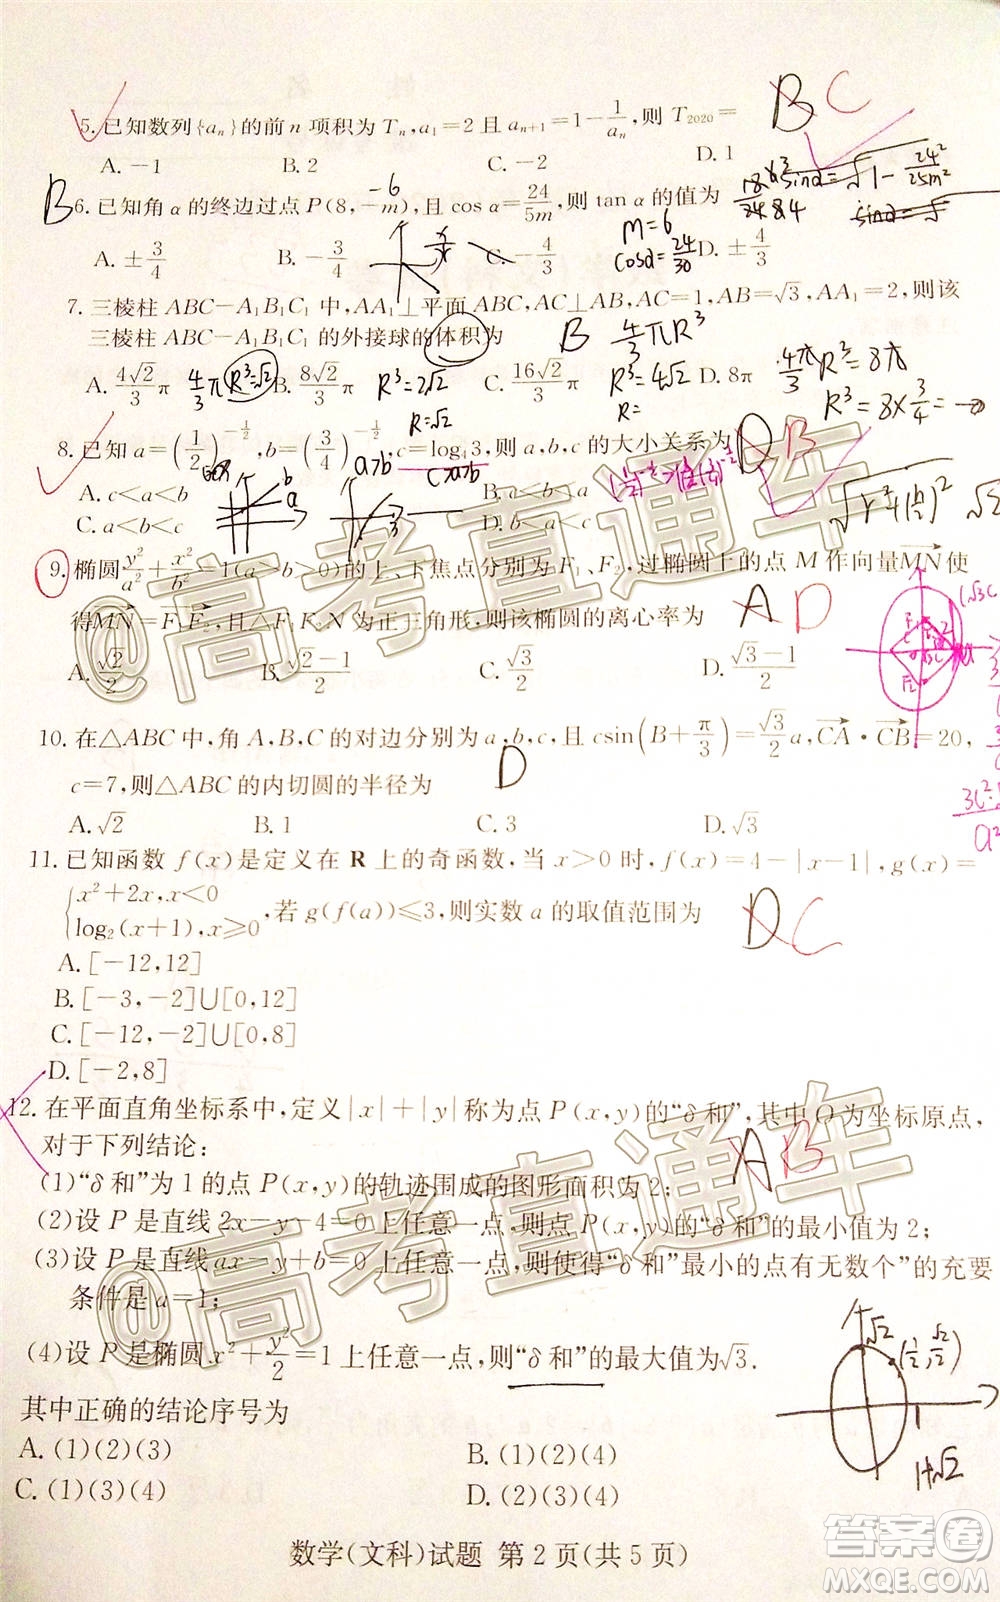 5.已知数列{aₙ}的前n项积为Tₙ,a₁=2且aₙ₊₁=1-1/aₙ,则T₂₀₂₀= B C
A.-1 B.2 C.-2 D.1
B 6.已知角α的终边过点P(8,-m),且cos α=24/5m,则tan α的值为
-6
sinα=√1-24²/25m²
m=6
cosα=24/30
A.±3/4 B.-3/4 C.-4/3 D.±4/3
7.三棱柱ABC-A₁B₁C₁中,AA₁⊥平面ABC,AC⊥AB,AC=1,AB=√3,AA₁=2,则该
三棱柱ABC-A₁B₁C₁的外接球的体积为 B 4/3πR³
A.4√2/3π B.8√2/3π C.16√2/3π D.8π
4/3π R³=√2 R³=2√2 R³=4√2 4/3πR³=8π
R=√2 R= R³=8×3/4=
8.已知a=(1/2)^(-1/2),b=(3/4)^(-1/2),c=log₄3,则a,b,c的大小关系为 D B
a>b c>a>b
A.c<a<b B.c<b<a
C.a<b<c D.b<a<c
9.椭圆y²/a²+x²/b²=1(a>b>0)的上、下焦点分别为F₁、F₂,过椭圆上的点M作向量MN使
得MN=F₁F₂,且△F₁F₂N为正三角形,则该椭圆的离心率为 A D
A.√2/2 B.√2-1/2 C.√3/2 D.√3-1/2
10.在△ABC中,角A,B,C的对边分别为a,b,c,且csin(B+π/3)=√3/2a,CA·CB=20,
c=7,则△ABC的内切圆的半径为 D
A.√2 B.1 C.3 D.√3
11.已知函数f(x)是定义在R上的奇函数,当x>0时,f(x)=4-|x-1|,g(x)=
{x²+2x,x<0
log₂(x+1),x≥0,若g(f(a))≤3,则实数a的取值范围为 D C
A.[-12,12]
B.[-3,-2]∪[0,12]
C.[-12,-2]∪[0,8]
D.[-2,8]
12.在平面直角坐标系中,定义|x|+|y|称为点P(x,y)的“δ和”,其中O为坐标原点,
对于下列结论: A B
(1)“δ和”为1的点P(x,y)的轨迹围成的图形面积为2;
(2)设P是直线2x-y-4=0上任意一点,则点P(x,y)的“δ和”的最小值为2;
(3)设P是直线ax-y+b=0上任意一点,则使得“δ和”最小的点有无数个”的充要
条件是a=1;
(4)设P是椭圆x²+y²/2=1上任意一点,则“δ和”的最大值为√3.
√2
(1/2,√2/2)
1
1+√2
其中正确的结论序号为
A.(1)(2)(3) B.(1)(2)(4)
C.(1)(3)(4) D.(2)(3)(4)
数学(文科)试题 第2页(共5页)
@高考直通车
@高考直通车
答案圈
MXQE.COM